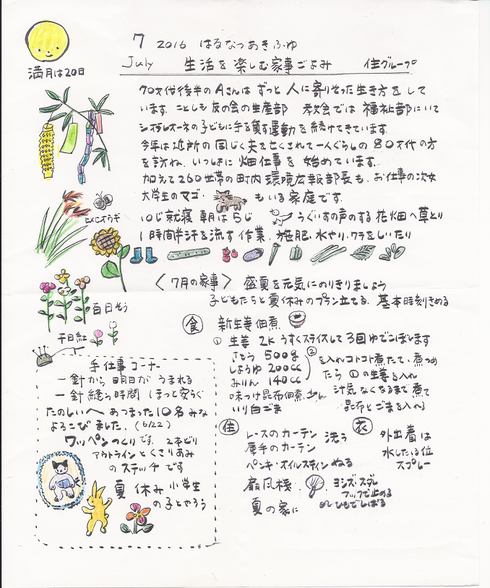 7 2016 はるなつあきふゆ
July 生活を楽しむ家事ごよみ 住グループ
満月は20日
70才代後半のAさんは ずっと 人に寄りそった生き方をして
います. ことしも 友の会の生産部 では 福祉部にいて
の子どもに手を貸す運動を続けてきています.
今年は近所の 同じく夫を亡くされて一人ぐらしの80才代の方
を訪ね、いっしょに 畑仕事を 始めています.
加えて260世帯の町内 環境広報部長も、お仕事の次女
大学生のマゴ・ もいる家庭です.
10じ就寝 朝は5じ うぐいすの声のする花畑へ草とり
1時間半汗を流す作業. 施肥、水やり、ワラをしいたり
ひおうぎ
〈7月の家事〉 盛夏を元気にのりきりましょう
子どもたちと夏休みのプラン立てる. 基本時刻きめる
百日そう
千日紅
食 新生姜佃煮
① 生姜 2K うすくスライスして3回ゆでこぼします
さとう 500g
しょうゆ 200cc
みりん 140cc
② を入れコトコト煮たて、煮つめ
たら ①の生姜を入れ
汁気なくなるまで煮て
昆布とごまを入れ
いり白ごま
手仕事コーナー
一針から明日がうまれる
一針縫う時間 ほっと安らぐ
たのしいへ あつまった10名 みな
よろこびました. (6/22)
ワッペンつくりです.
アウトラインとくさりあみ
のステッチです
夏休み小学生
の子とやろう
住
レースのカーテン 洗う
厚手のカーテン
ペンキ・オイルステイン ぬる
扇風機
夏の家に
ヨシズ・スダレ
フックで止める
ひもでしばる
衣
外出着は
水した位
スプレー